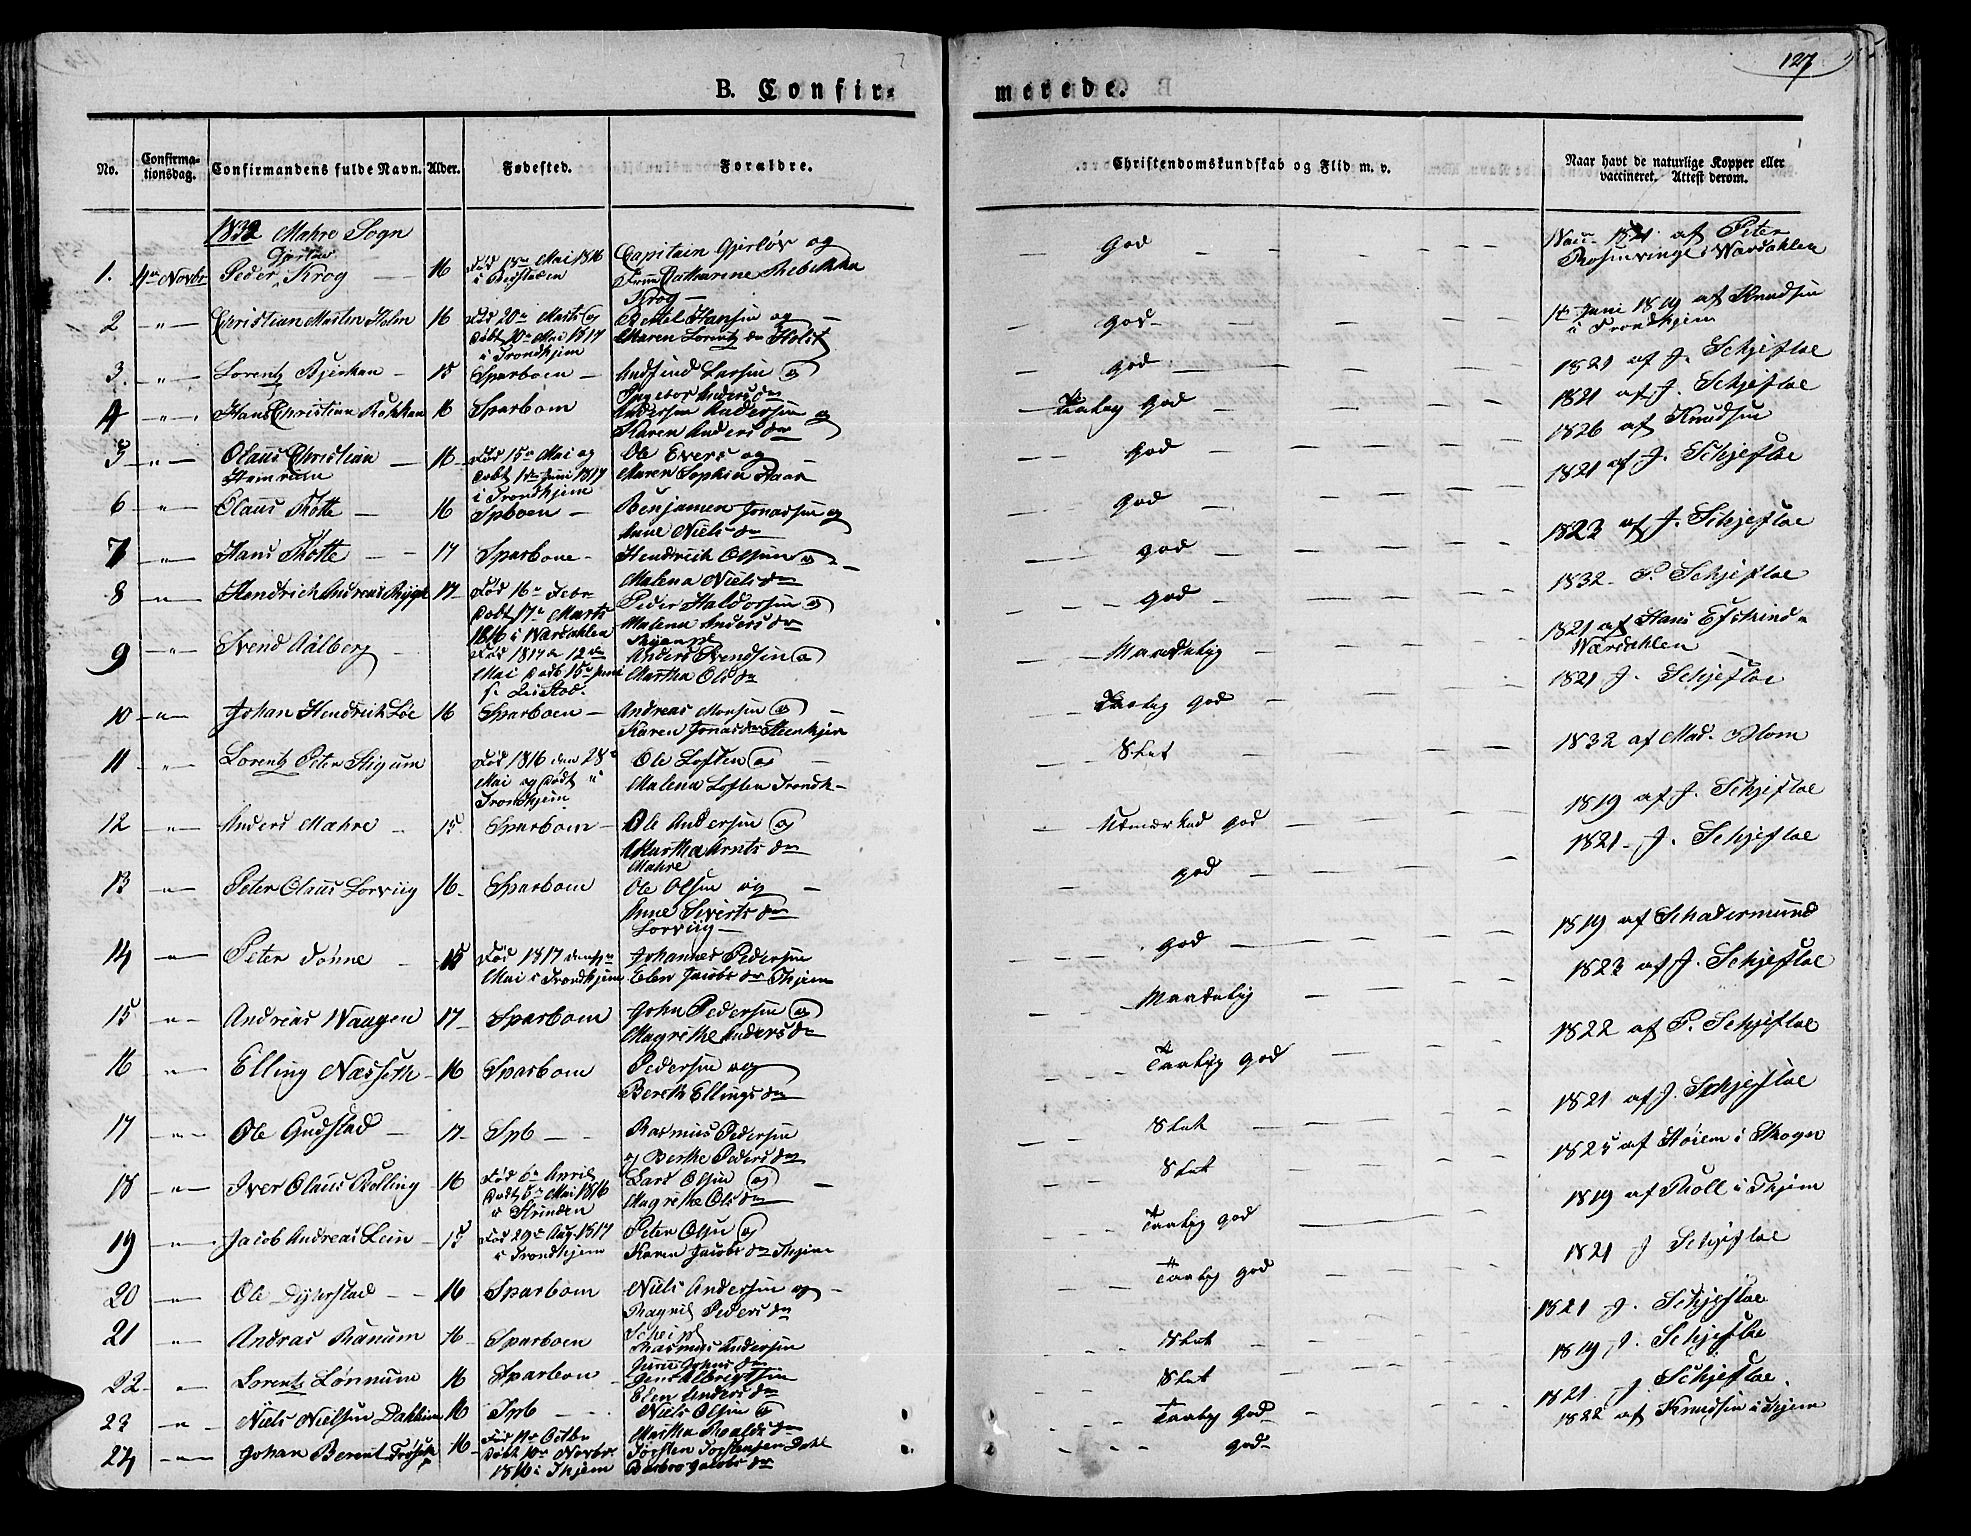 127
B. Confirmerede.
No. Confirmationsdag. Confirmandens fulde Navn. Alder. Fødested. Forældre. Christendomskundskab og Flid m. v. Naar havt de naturlige Kopper eller vaccineret. Attest derom.
1832 Mahre Sogn
1. 4de Novbr Peder Gjerløv Krog 16 Fød 18de Mai 1816 i Capitain Gjerløv og Frue Catharine Rebekka Krog God 1821 af Peter Rosenvinge i Værdahlen
2 " Christian Martin Holm 16 Fød 20de Marts og døbt 10de Mai 1817 i Trondhjem Bertel Hansen og Maren Lorentz dr Holst god Juni 1819 af Knudsen i Trondhjem
3. " Lorentz Bjerkan 15 Sparboen Andfind Larsen og Ingebor Anders dr god 1821 af J. Schjefloe
4 " Hans Christian 16 Sparboen Andersen Andersen og Karen Anders dr Taalig God 1821 af J. Schjefloe
5 " Olaus Christian Hamrum 16 Fød 15de Mai og døbt Juni 1817 i Trondhjem Ole Evers og Maren Sophia Haar god 1826 af Knudsen
6 " Olaus Motte 16 Spboen Benjamen Jonassen og Anne Niels dr god 1821 af J. Schjefloe
7 " Hans Motte 17 Sparboen Hendrich Olsen og Malena Niels dr god 1823 af J. Schjefloe
8 " Hendrich Andreas 17 Fød 16de Febr døbt 17de Marts 1816 i Værdahlen Peder Haldorsen og Malena Anders dr god 1832 P. Schjefloe
9 " Svend Aalberg Fød 1817 12de Mai døbt 15de Juni Anders Svendsen og Martha Ols dr Maadelig 1821 af Hans Værdahlen
10 " Johan Hendrich Löe 16 Sparboen Andreas Monsen og Karen Jonas dr Steenkjer Taalig god 1821 J. Schjefloe
11 " Lorentz Peter Stigum Fød 1816 den 28de Mai og døbt i Trondhjem Ole Loften og Malena Loften Trondh Slet 1832 af Mad. Blom
12 " Anders Mahre 15 Sparboen Ole Andersen og Martha Arnts dr Mahre Utmærked god 1819 af J. Schjefloe
13 " Peter Olaus Lorviig 16 Sparboen Ole Olsen og Anne Siverts dr Lorviig god 1821 J. Schjefloe
14 " Peter Tønne 15 Fød 1817 Mai i Trondhjem Johannes Pedersen Elen Jacobs dr Thjem god 1819 af Schadermund
15 " Andreas Waagen 17 Sparboen John Pedersen og Magrethe Anders dr Maadelig 1823 af J. Schjefloe
16 " Elling Næsseth 16 Sparboen Pedersen og Bereth Ellings dr Taalig god 1822 af P. Schjefloe
17 " Ole Gudstad 17 Spb Rasmus Pedersen og Berthe Peders dr Slet 1821 af J. Schjefloe
18 " Iver Olaus Rolling 16 Fød 6de April døbt 5de Mai 1816 i Strinden Lars Olsen og Magrethe Ols dr Slet 1825 af Høiem i Skogn
19 " Jacob Andreas Lein 15 Fød 29de Aug. 1817 i Trondhjem Peter Olsen og Karen Jacobs dr Thjem Taalig god 1819 af Moll i Thjem
20 " Ole Dyrstad 16 Sparboen Niels Andersen og Ragnil Peders dr Taalig god 1821 J Schjefloe
21 " Andras Ranum 16 Sparboen Rasmus Andersen Juru Johns dr Slet 1821 J. Schjefloe
22 " Lorentz Lønnum 16 Sparboen Jens Albrigtsen Elen Anders dr Slet 1819 J. Schjefloe
23 " Niels Nielsen Dahlum 16 Spb Niels Olsen og Martha Roalds dr Taalig God 1821 J Schjefloe
24 " Johan Berent 16 Fød Octbr døbt Novbr 1816 i Thjem Torsten Torstensen Dahl Barbro Jacobs dr god 1822 af Knudsen i Thjem